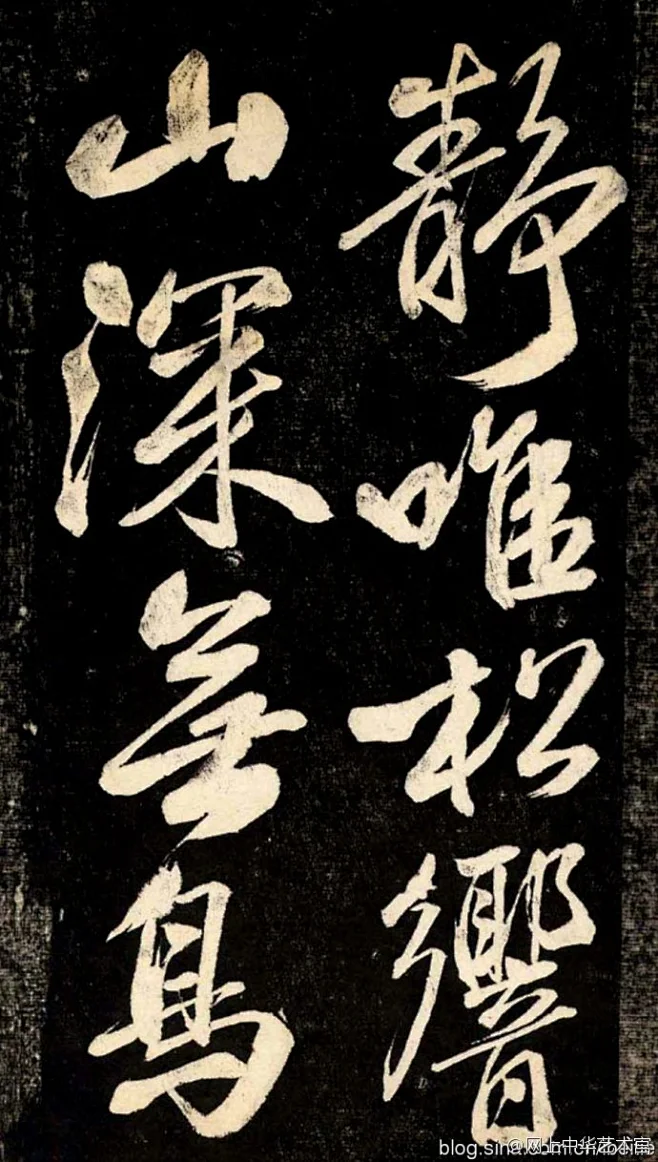 靜唯松響
山深無鳥
@网上中华艺术室
blog.sina.com.cn/beifie